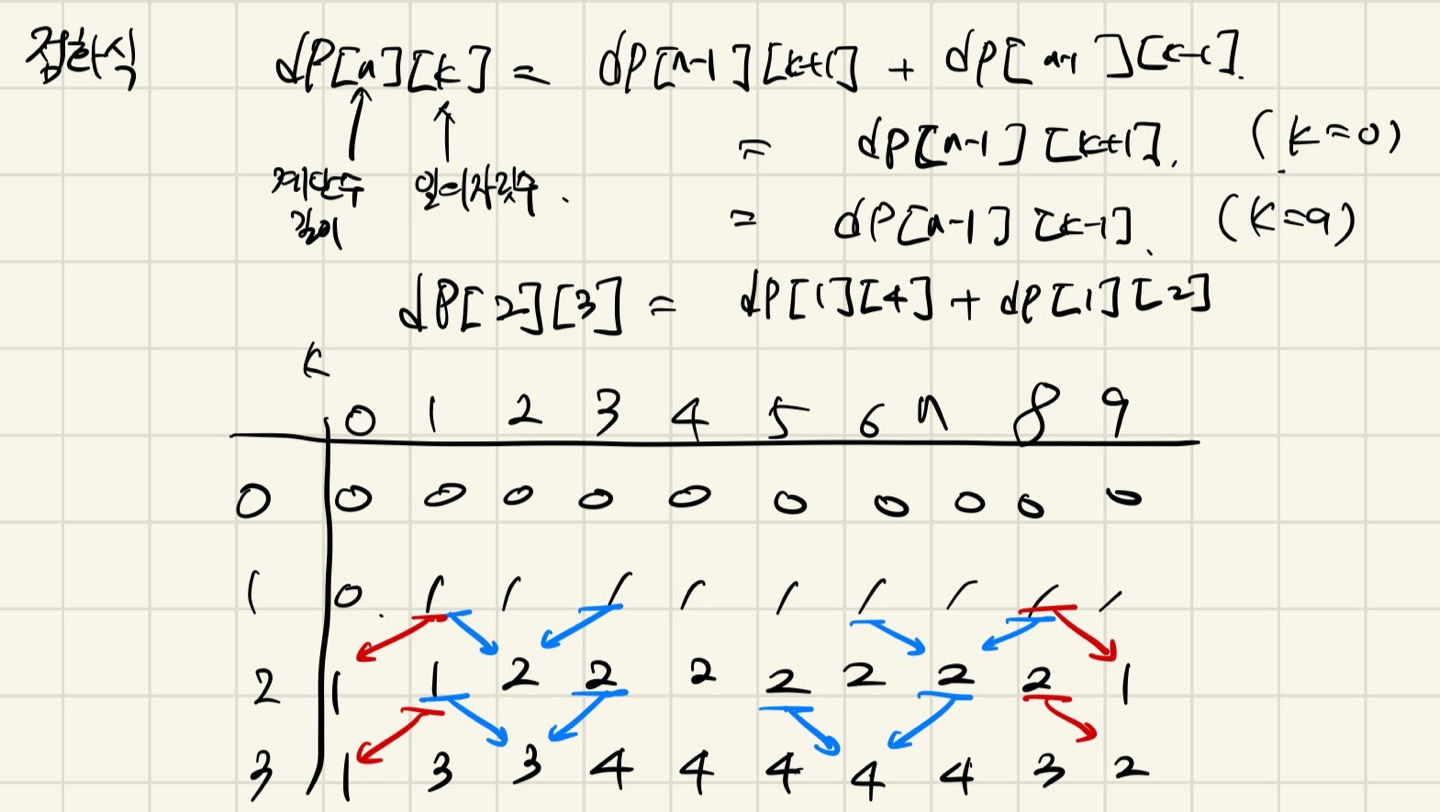 점화식 dp[n][k] = dp[n-1][k+1] + dp[n-1][k-1].
= dp[n-1][k+1]. (k=0)
계단수 일의자릿수. = dp[n-1][k-1]. (k=9)
길이
dp[2][3] = dp[1][4] + dp[1][2]
k
0 1 2 3 4 5 6 7 8 9
0 0 0 0 0 0 0 0 0 0 0
1 0 1 1 1 1 1 1 1 1 1
2 1 1 2 2 2 2 2 2 2 1
3 1 3 3 4 4 4 4 4 3 2